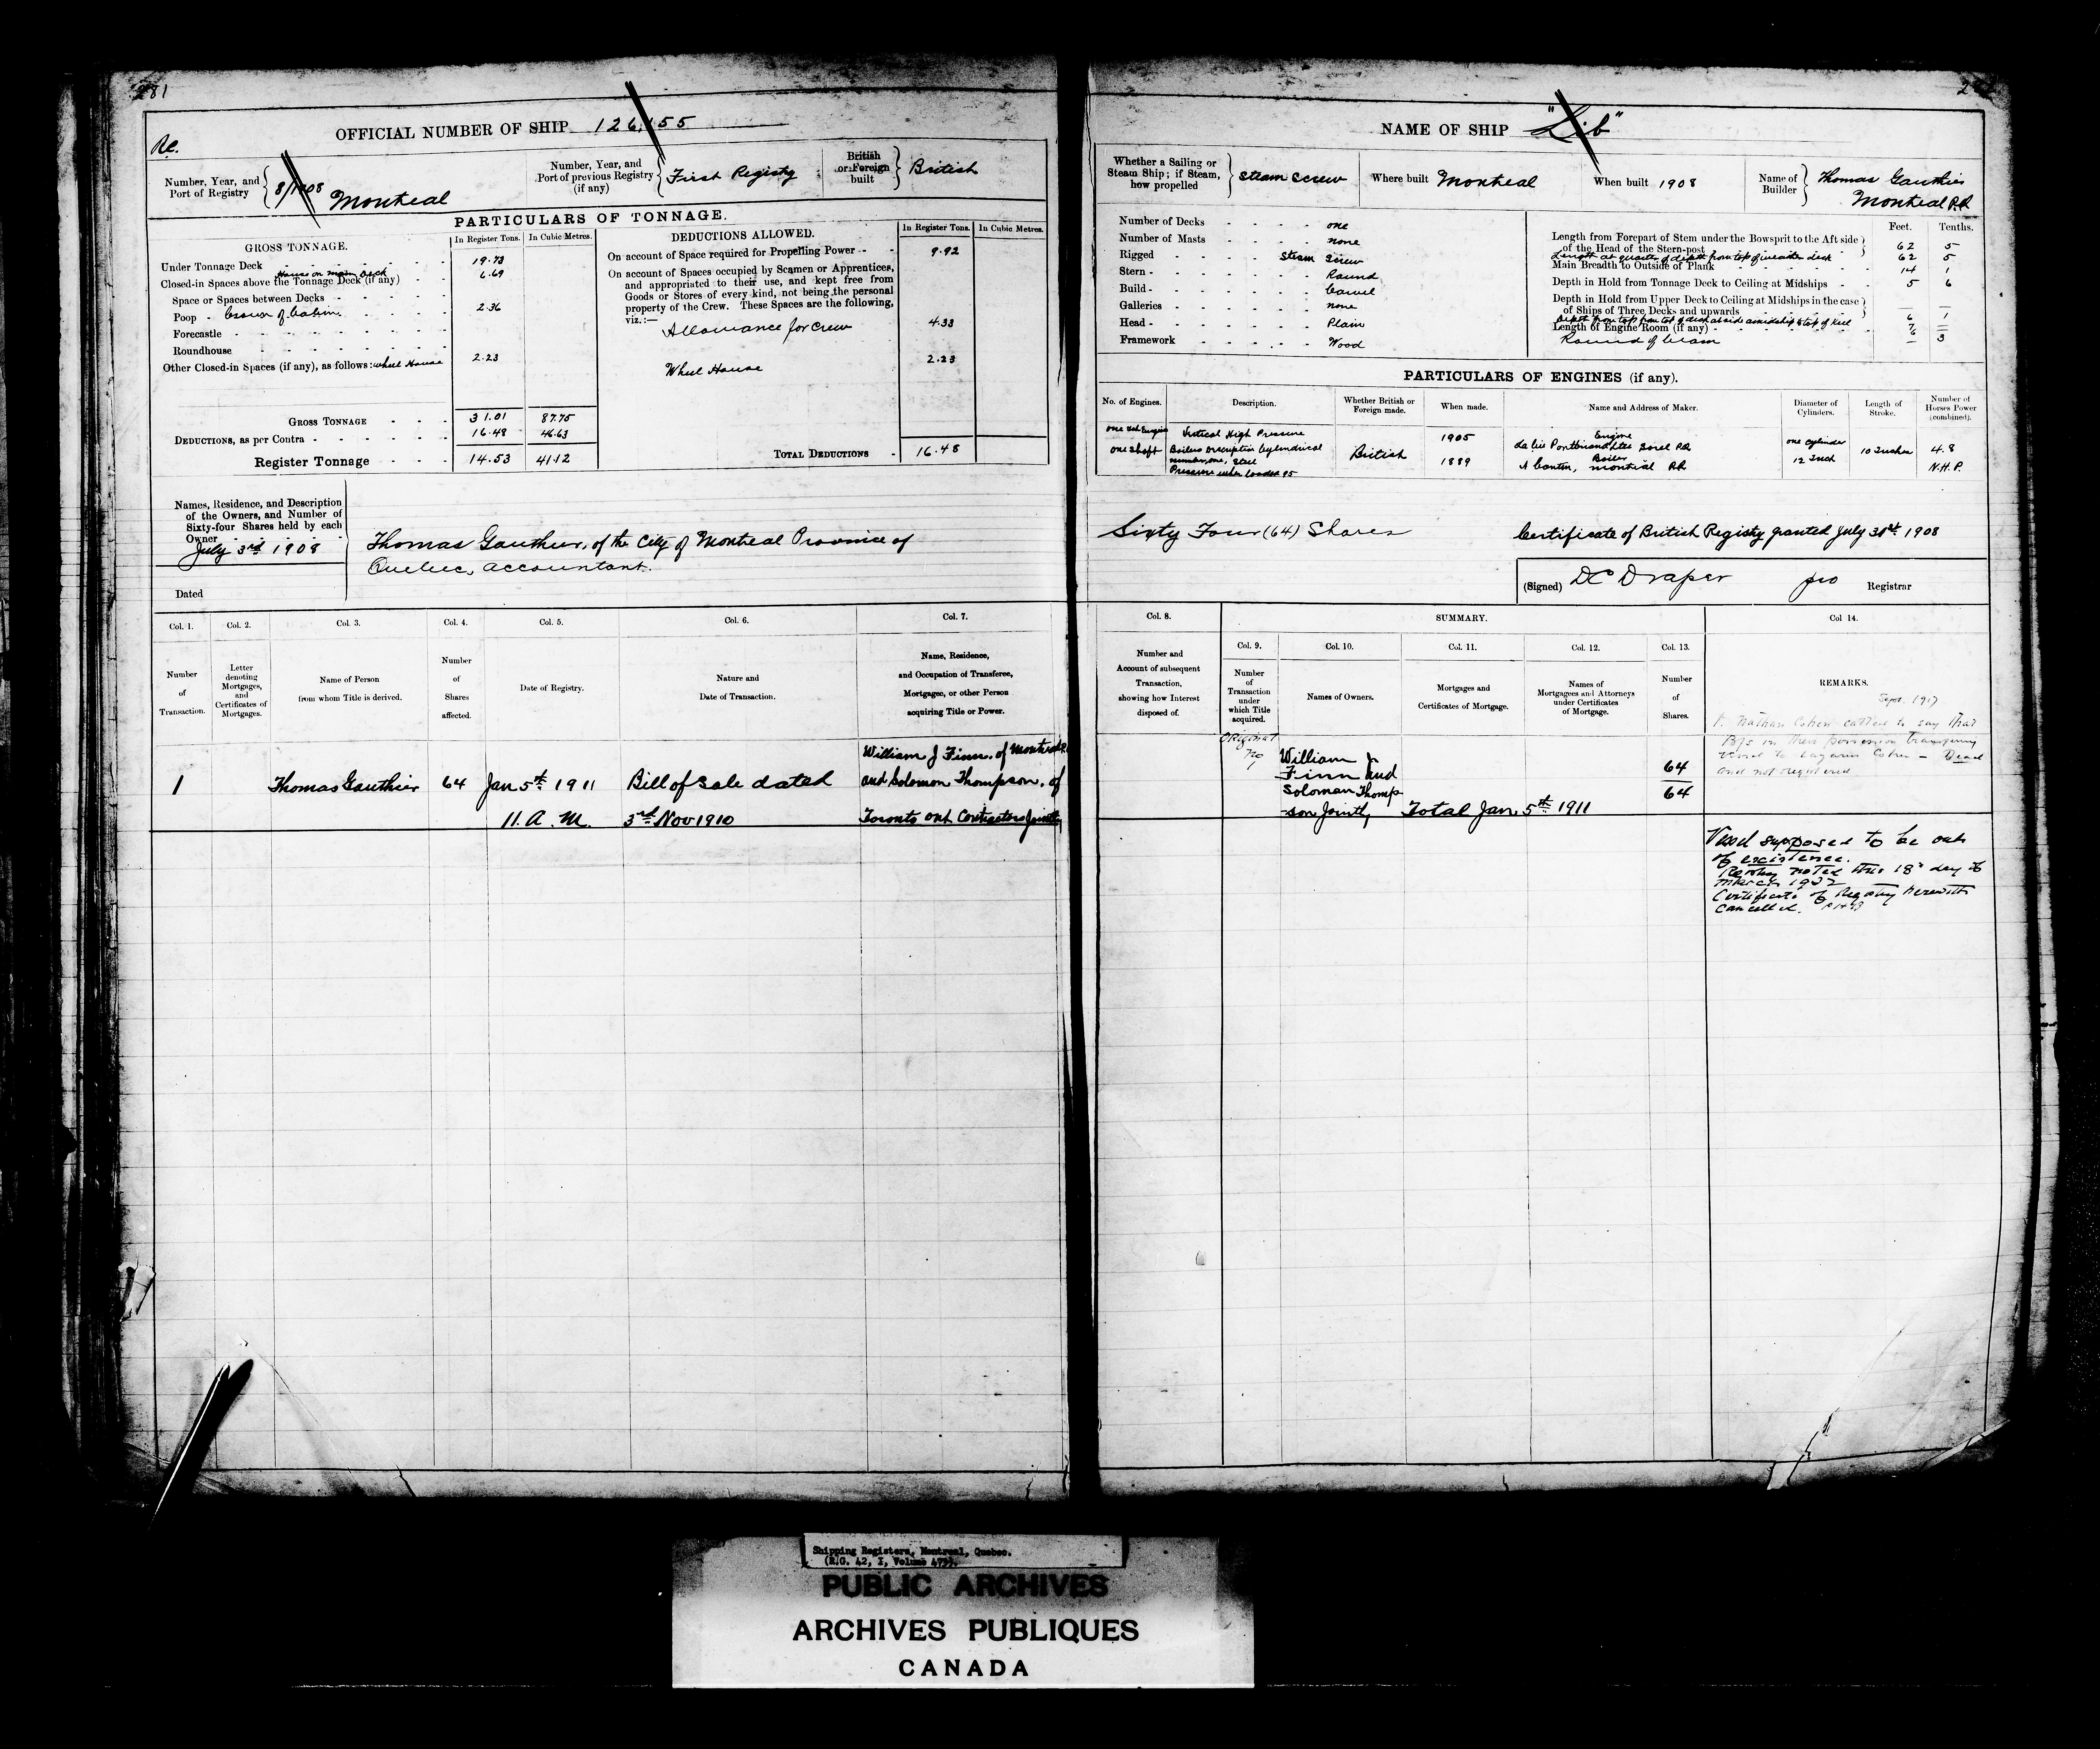 281
Re.
OFFICIAL NUMBER OF SHIP 126,155
Number, Year, and Port of Registry 8/1908 Montreal
Number, Year, and Port of previous Registry (if any) First Registry
British or Foreign built British
PARTICULARS OF TONNAGE.
GROSS TONNAGE.
In Register Tons. In Cubic Metres.
Under Tonnage Deck 19.73
House on main Deck
Closed-in Spaces above the Tonnage Deck (if any) 6.69
Space or Spaces between Decks
Poop 2.36
Forecastle
Roundhouse
Other Closed-in Spaces (if any), as follows: wheel House 2.23
GROSS TONNAGE 31.01 87.75
DEDUCTIONS, as per Contra 16.48 46.63
Register Tonnage 14.53 41.12
DEDUCTIONS ALLOWED.
In Register Tons. In Cubic Metres.
On account of Space required for Propelling Power 9.92
On account of Spaces occupied by Seamen or Apprentices,
and appropriated to their use, and kept free from
Goods or Stores of every kind, not being the personal
property of the Crew. These Spaces are the following,
viz.:—
Allowance for Crew 4.33
Wheel House 2.23
TOTAL DEDUCTIONS 16.48
Names, Residence, and Description
of the Owners, and Number of
Sixty-four Shares held by each
Owner
July 3rd 1908
Dated
Thomas Gauthier, of the City of Montreal Province of
Quebec, accountant.
Col. 1. Col. 2. Col. 3. Col. 4. Col. 5. Col. 6. Col. 7.
Number of Transaction.
Letter denoting Mortgages, and Certificates of Mortgages.
Name of Person from whom Title is derived.
Number of Shares affected.
Date of Registry.
Nature and Date of Transaction.
Name, Residence, and Occupation of Transferee, Mortgagee, or other Person acquiring Title or Power.
William J Finn, of Montreal
1 Thomas Gauthier 64 Jan 5th 1911 Bill of sale dated and Solomon Thompson, of
11. A. M. 3rd Nov 1910 Toronto Ont Contractors Jointly
NAME OF SHIP "Lib"
Whether a Sailing or Steam Ship; if Steam, how propelled Steam Screw
Where built Montreal
When built 1908
Name of Builder Thomas Gauthier
Montreal P.Q
Number of Decks one
Number of Masts none
Rigged Steam Screw
Stern Round
Build Carvel
Galleries none
Head Plain
Framework Wood
Feet. Tenths.
Length from Forepart of Stem under the Bowsprit to the Aft side
of the Head of the Stern-post 62 5
Length at quarter of depth from top of weather deck 62 5
Main Breadth to Outside of Plank 14 1
Depth in Hold from Tonnage Deck to Ceiling at Midships 5 6
Depth in Hold from Upper Deck to Ceiling at Midships in the case
of Ships of Three Decks and upwards
Depth from top of deck at side amidship to top of Keel 6 1
Length of Engine Room (if any)
Round of beam 3
PARTICULARS OF ENGINES (if any).
No. of Engines. Description. Whether British or Foreign made. When made. Name and Address of Maker. Diameter of Cylinders. Length of Stroke. Number of Horses Power (combined).
one Shaft
Vertical High Pressure
Boilers description Cylindrical
number, one, Steel
Pressure when loaded 95
British
1905
1889
Engine
Sorel P.Q.
Boiler
Montreal P.Q
one cylinder
12 Inch
10 Inches
4.8
N.H.P.
Sixty Four (64) Shares
Certificate of British Registry granted July 3rd 1908
(Signed) DC Draper pro Registrar
Col. 8. SUMMARY. Col 14.
Col. 9. Col. 10. Col. 11. Col. 12. Col. 13.
Number and Account of subsequent Transaction, showing how Interest disposed of.
Number of Transaction under which Title acquired.
Names of Owners.
Mortgages and Certificates of Mortgage.
Names of Mortgagees and Attorneys under Certificates of Mortgage.
Number of Shares.
REMARKS.
Original
No 1
William J
Finn and
Soloman Thomp
-son Jointly
Total Jan. 5th 1911
64
64
Sept. 1917
Nathan Cohen called to say that
B/S in their possession transferring
Vessel to Lazarus Cohen
and not registered
Vessel supposed to be out
of existence.
Registry noted this 18th day of
March 1932
Certificate of Registry herewith
cancelled.
Shipping Registers, Montreal, Quebec.
PUBLIC ARCHIVES
ARCHIVES PUBLIQUES
CANADA